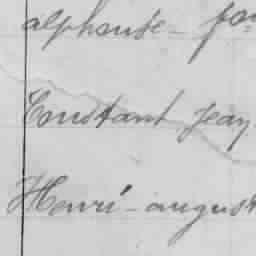 alphonse -
Constant Jean
Henri - august